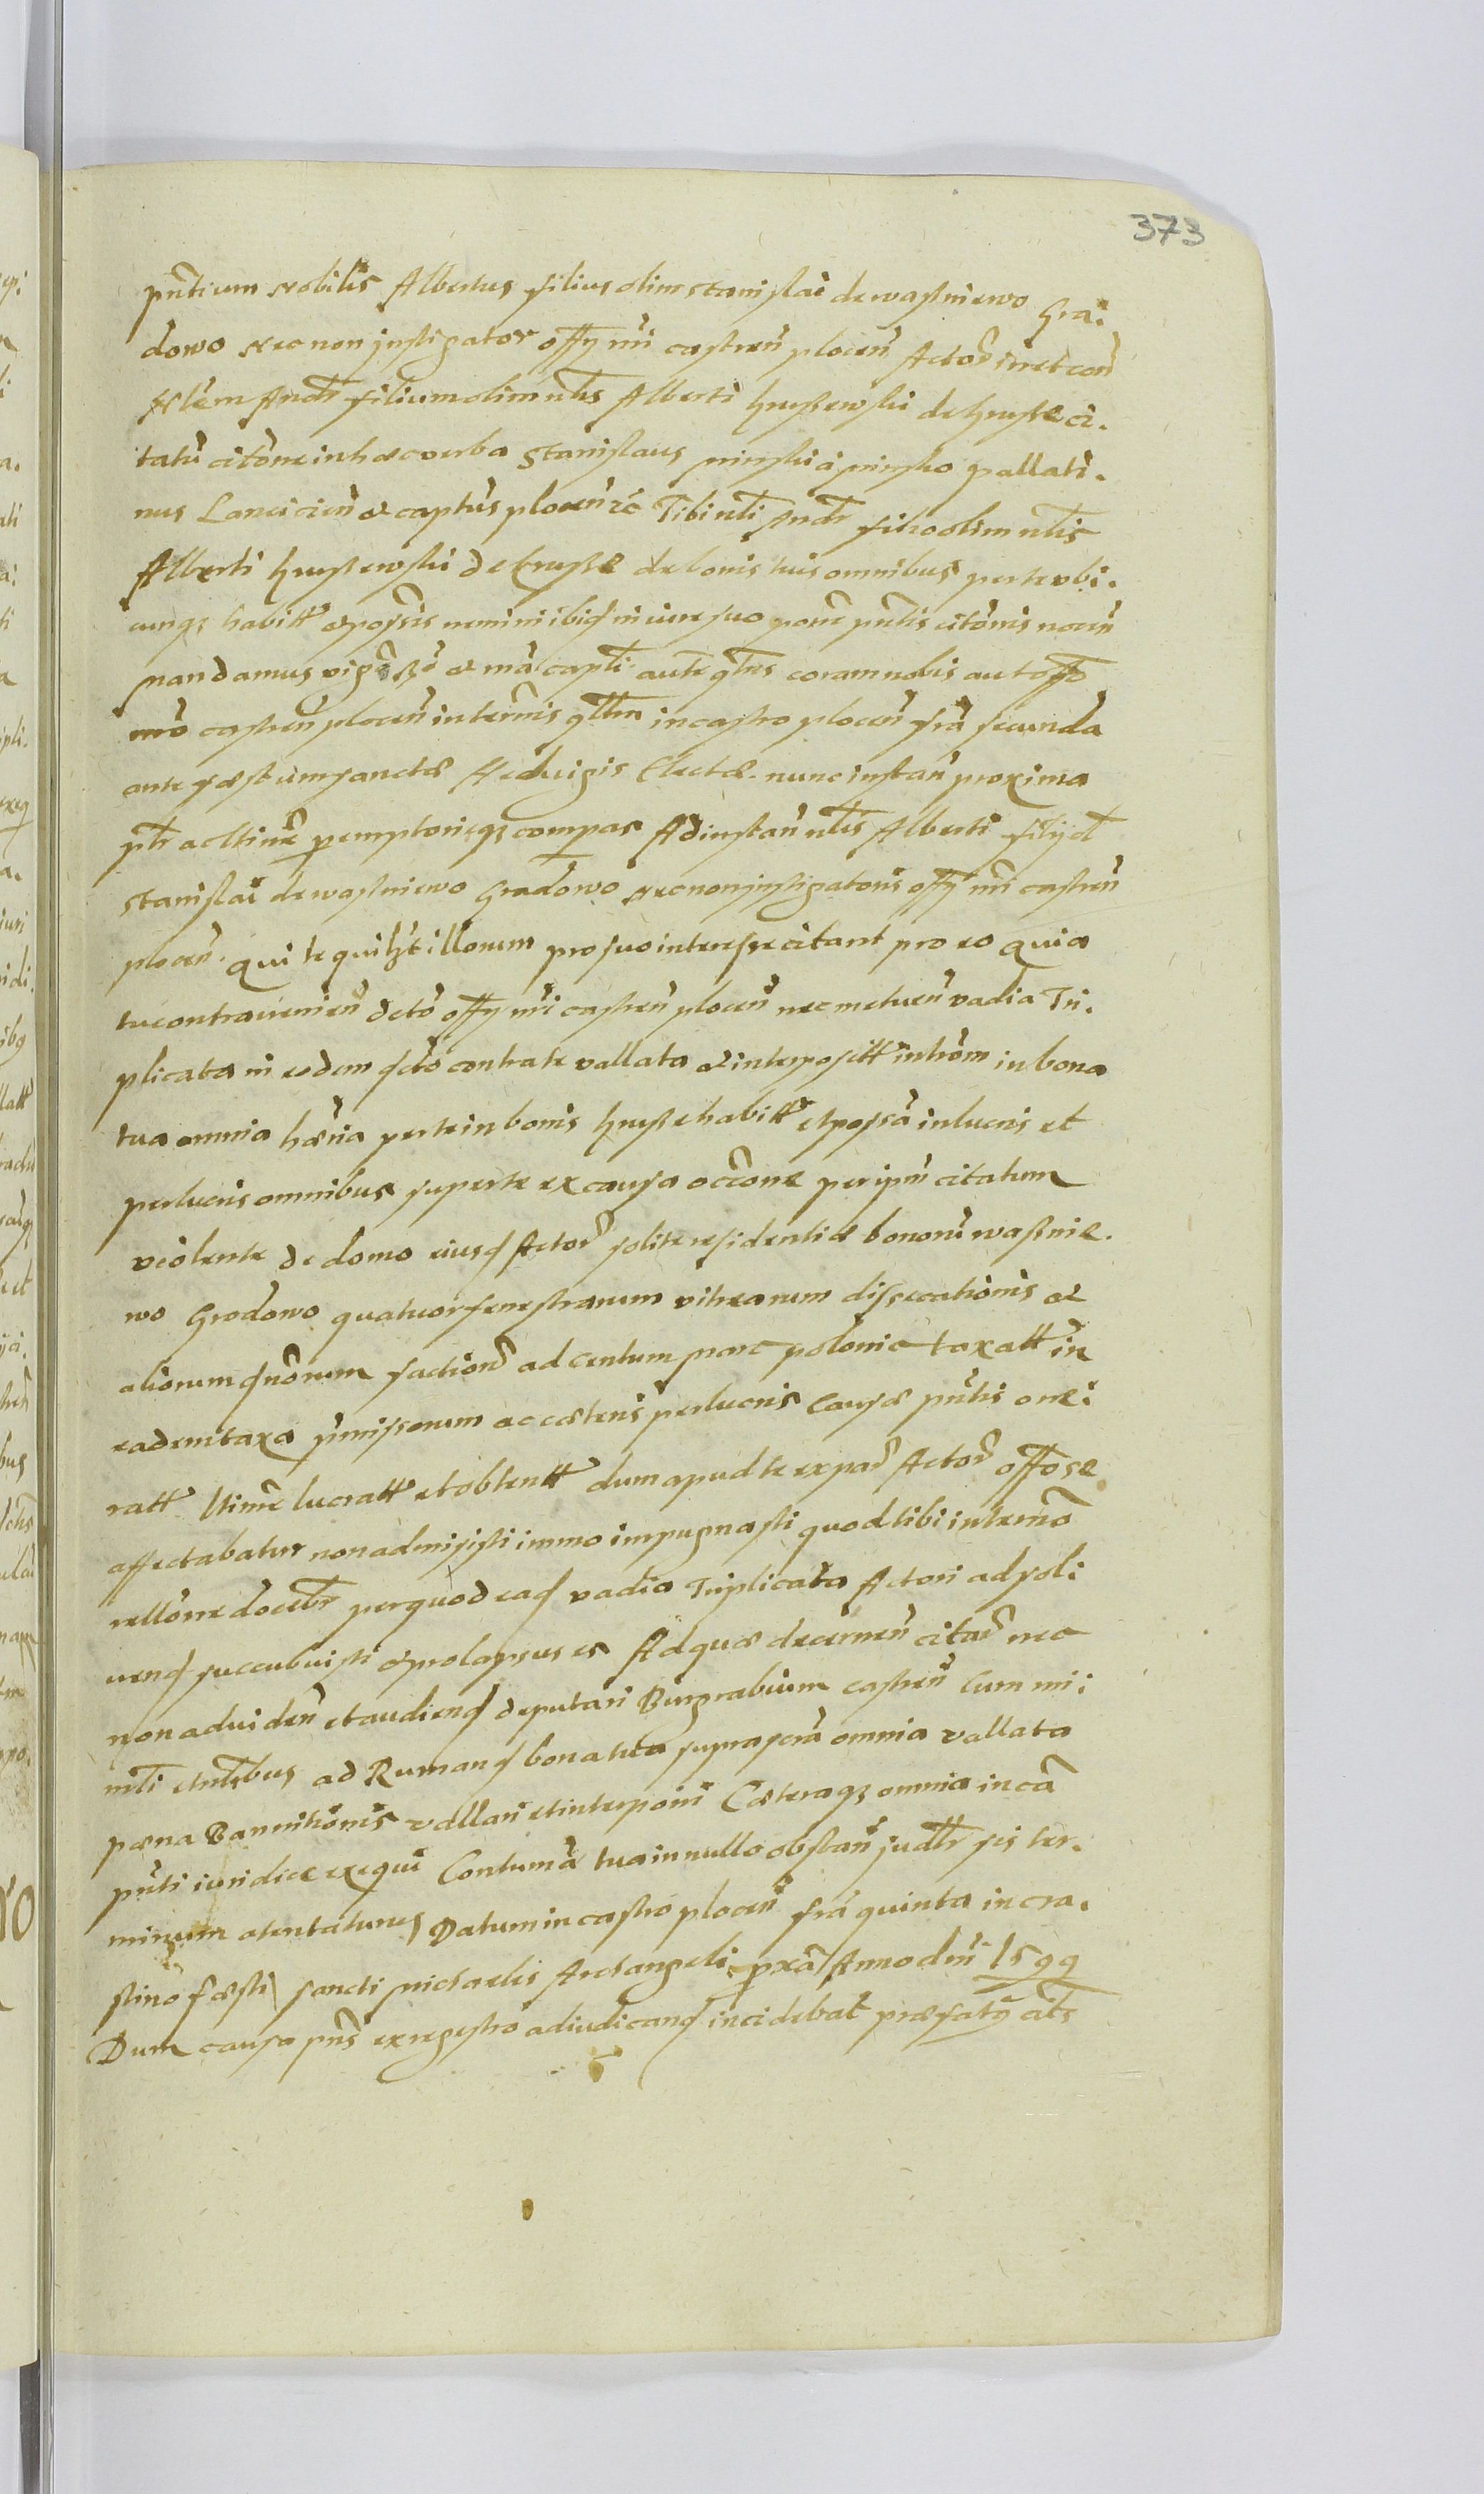 373
pñtium Nobilis Albertus filius olim Stanislai de Wasniewo Gra:
dowo Nec non instigator offy nri castreñ ploceñ Actor iuret con
Nlem Andr filium olim nlis Alberti Hrussewski de Hrusse ci.
tatũ citõne in hæc verba Stanislaus Minski à Minsko pallati.
nus Lancicieñ & captũs ploceñ &c Tibi nli Andr filio olim nlis
Alberti Hrussewski de Hrusse de bonis tuis omnibus per te ubi.
cunqz habitt & possis nemini ibiq in iure suo pone pñtis citõnis noceñ
Mandamus vig & mã capti aute qtns coram nobis aut offo
nro castreñ ploceñ in termis qltm in castro ploceñ fria secunda
ante fæstum sanctæ Heduigis Electæ nunc instañ proxima
ptr ac ltime peremptorieqz compar Ad instañ nlis Alberti filij ol
Stanislai de Wasniewo Gradowo Nec non instigatoris offy nri castreñ
ploceñ. qui te quilibet illorum pro suo interesse citant pro eo quia
tu contraueniẽn dcto offy nri castreñ ploceñ nec metueñ vadia Tri.
plicata in eodem fcto contra te vallata & interpositt introm in bona
tua omnia hæria per te in bonis Hrusse habitt et possa in lucris et
per lucris omnibus super te ex causa occone per ipm citatum
violente de domo eiusd Actor solite residentiæ bonorũ Wasnie.
wo Gradowo quatuor fenestrarum vitrearum dissecationis &
aliorum damnorum factione ad centum marc polonic taxatt in
eadem taxa pmissorum ac cæteris per lucris Causæ pñtis one:
ratt ltime lucratt et obtentt dum apud te ex par Actor offose
affectabatur non admisisti immo impugnasti quod tibi in termo
rellone docebr per quod ead vadia Triplicata Actori ad sol:
uend succubuisti & prolapsus es Ad quæ decerneñ citar nec
non ad videñ et audiend deputari Burgrabium castreñ Cum mi:
nli et nlibus ad Rumand bona tua suprascra omnia vallata
pæna Bannitionis vallari et interponi Cæteraqz omnia in ca
pñti iuridice exequi Contuma tua in nullo obstañ judlr sis ter.
minum atentaturus Datum in castro ploceñ fria quinta in cra.
stino fæsti sancti Michaelis Archangeli pxa Anno dni 1599
Dum causa pñs ex regestro adiudicand incidebat præfatus cits